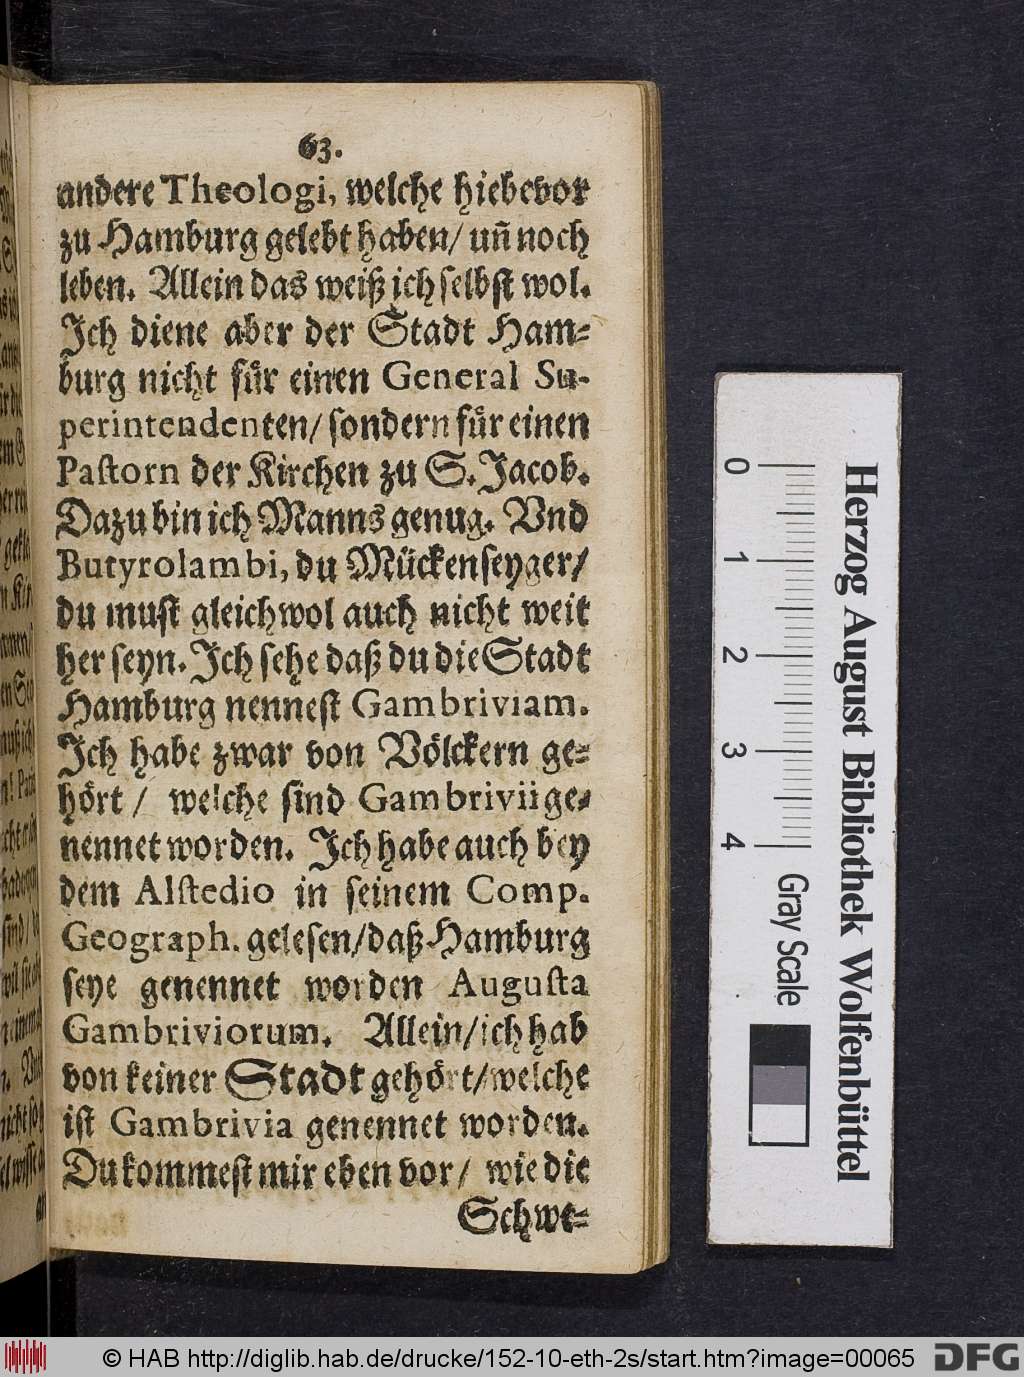 63.
andere Theologi, welche hiebevor
zu Hamburg gelebt haben/ uñ noch
leben. Allein das weiß ich selbst wol.
Ich diene aber der Stadt Ham-
burg nicht für einen General Su-
perintendenten/ sondern für einen
Pastorn der Kirchen zu S. Jacob.
Dazu bin ich Manns genug. Vnd
Butyrolambi, du Mückenseyger/
du must gleichwol auch nicht weit
her seyn. Ich sehe daß du die Stadt
Hamburg nennest Gambriviam.
Ich habe zwar von Völckern ge-
hört/ welche sind Gambrivii ge-
nennet worden. Ich habe auch bey
dem Alstedio in seinem Comp.
Geograph. gelesen/ daß Hamburg
seye genennet worden Augusta
Gambriviorum. Allein/ ich hab
von keiner Stadt gehört/ welche
ist Gambrivia genennet worden.
Du kommest mir eben vor/ wie die
Schwe-
0 1 2 3 4
Gray Scale
Herzog August Bibliothek Wolfenbüttel
© HAB http://diglib.hab.de/drucke/152-10-eth-2s/start.htm?image=00065
DFG